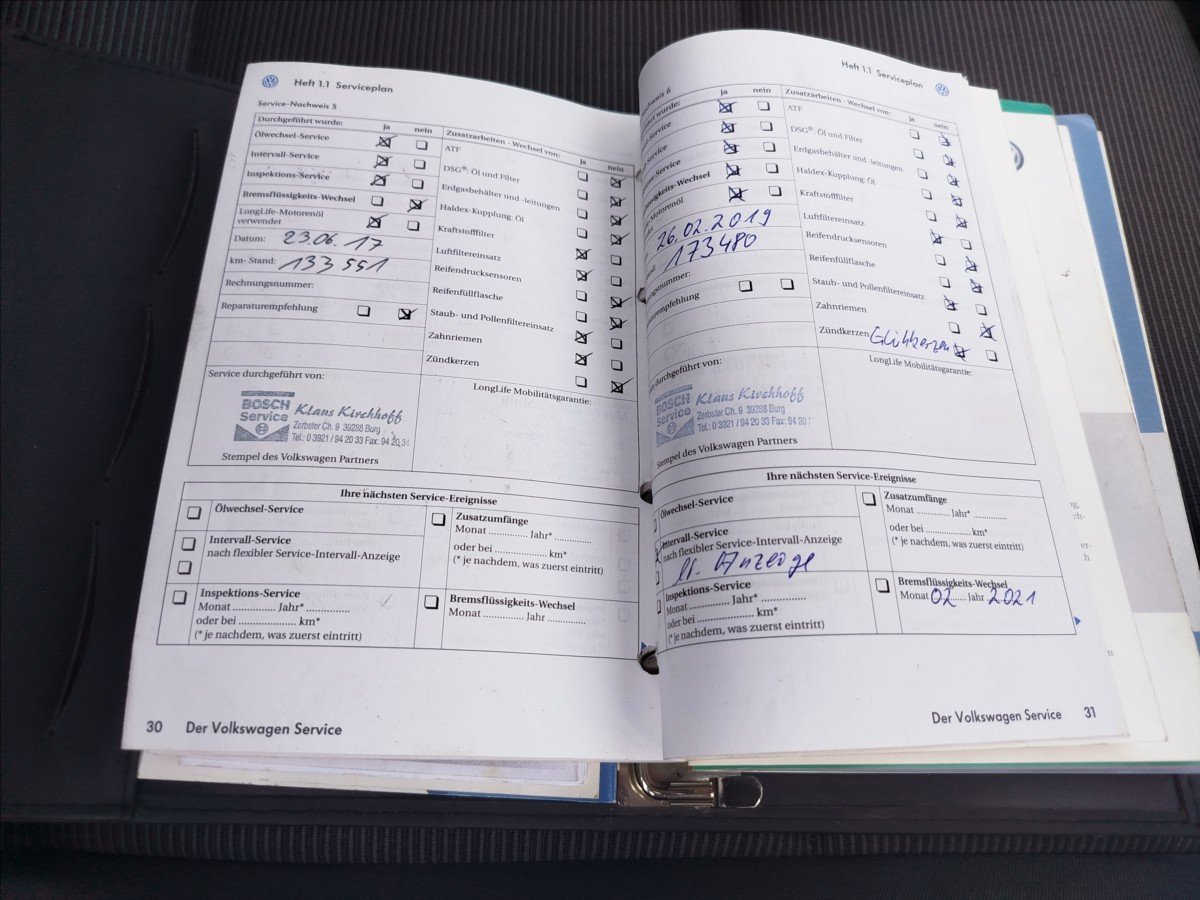 Heft 1.1 Serviceplan
Service-Nachweis 5
Durchgeführt wurde: ja nein
Ölwechsel-Service
Intervall-Service
Inspektions-Service
Bremsflüssigkeits-Wechsel
LongLife-Motorenöl
verwendet
Datum: 23.06.17
km- Stand: 133 551
Rechnungsnummer:
Reparaturempfehlung
Zusatzarbeiten - Wechsel von: ja nein
ATF
DSG®: Öl und Filter
Erdgasbehälter und -leitungen
Haldex-Kupplung: Öl
Kraftstofffilter
Luftfiltereinsatz
Reifendrucksensoren
Reifenfüllflasche
Staub- und Pollenfiltereinsatz
Zahnriemen
Zündkerzen
Service durchgeführt von:
LongLife Mobilitätsgarantie:
BOSCH
Service
Klaus Kirchhoff
Zerbster Ch. 9 39288 Burg
Tel.: 0 3921 / 94 20 33 Fax: 94 20 34
Stempel des Volkswagen Partners
Ihre nächsten Service-Ereignisse
Ölwechsel-Service
Intervall-Service
nach flexibler Service-Intervall-Anzeige
Inspektions-Service
Monat ................ Jahr* ...............
oder bei ......................... km*
(* je nachdem, was zuerst eintritt)
Zusatzumfänge
Monat ............... Jahr* .............
oder bei .................... km*
(* je nachdem, was zuerst eintritt)
Bremsflüssigkeits-Wechsel
Monat .............. Jahr ...............
30 Der Volkswagen Service
Heft 1.1 Serviceplan
Nachweis 6
führt wurde: ja nein
-Service
-Service
-Service
-Wechsel
Motorenöl
26.02.2019
173480
nummer:
empfehlung
Zusatzarbeiten - Wechsel von: ja nein
ATF
DSG®: Öl und Filter
Erdgasbehälter und -leitungen
Haldex-Kupplung: Öl
Kraftstofffilter
Luftfiltereinsatz
Reifendrucksensoren
Reifenfüllflasche
Staub- und Pollenfiltereinsatz
Zahnriemen
Zündkerzen Glühkerzen
durchgeführt von:
LongLife Mobilitätsgarantie:
BOSCH
Service
Klaus Kirchhoff
Zerbster Ch. 9 39288 Burg
Tel.: 0 3921 / 94 20 33 Fax: 94 20
Stempel des Volkswagen Partners
Ihre nächsten Service-Ereignisse
Ölwechsel-Service
Intervall-Service
nach flexibler Service-Intervall-Anzeige
lt. Anzeige
Inspektions-Service
Monat ................ Jahr* ...............
oder bei ......................... km*
(* je nachdem, was zuerst eintritt)
Zusatzumfänge
Monat ............... Jahr* .............
oder bei .................... km*
(* je nachdem, was zuerst eintritt)
Bremsflüssigkeits-Wechsel
Monat 02 Jahr 2021
Der Volkswagen Service 31